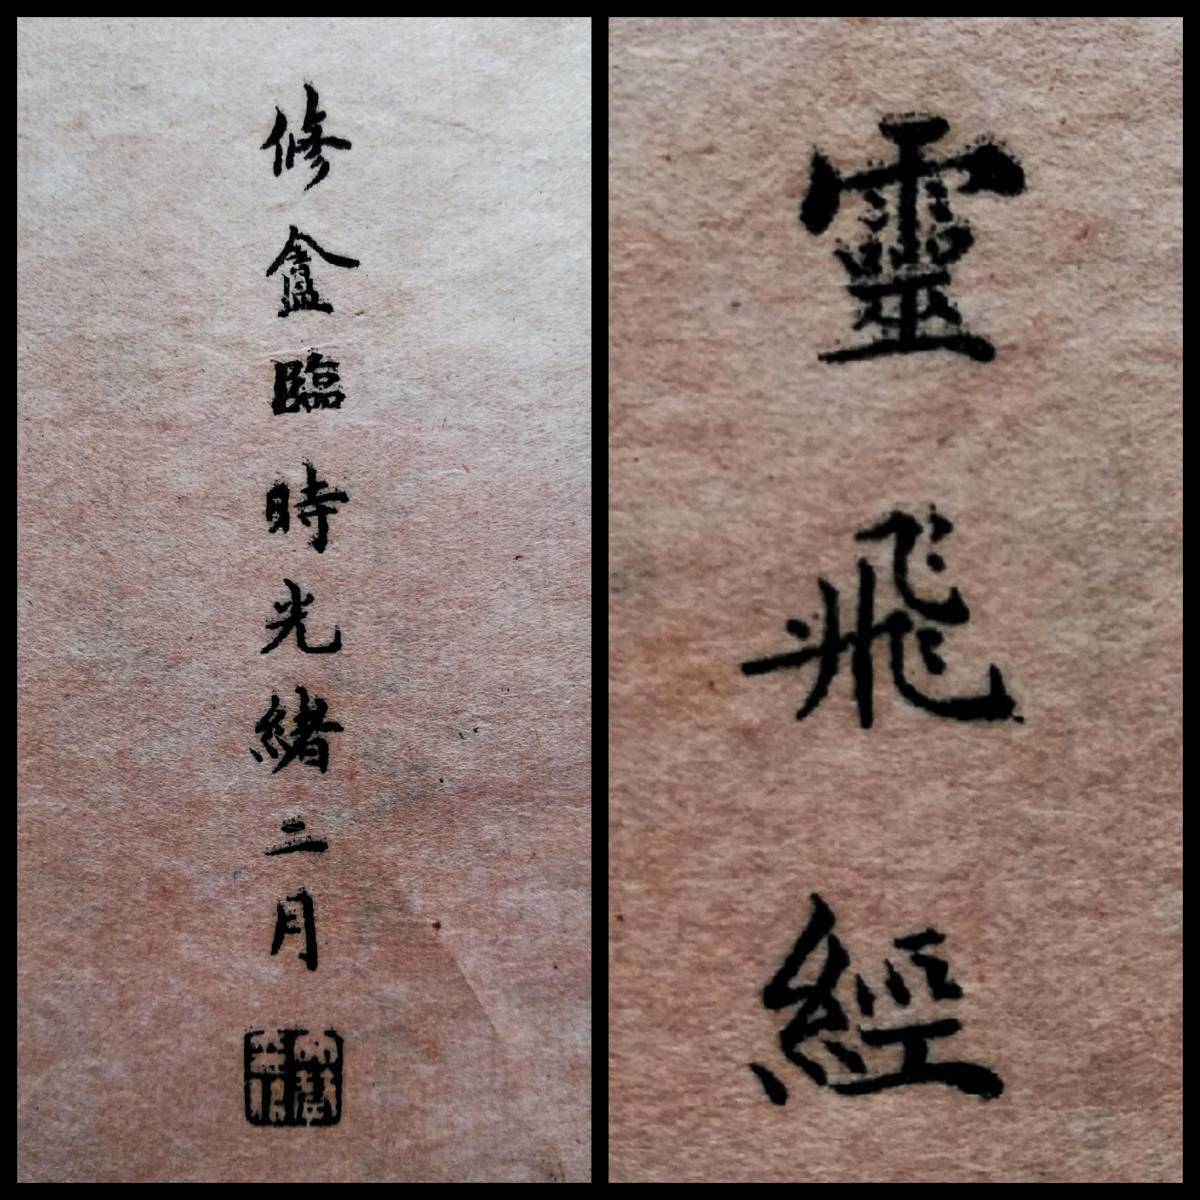 靈飛經
修盦臨時光緒二月